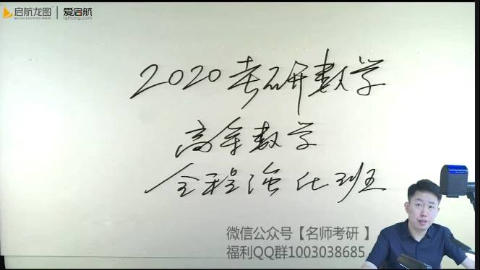 启航龙图 | 爱启航
2020考研数学
高等数学
全程强化班
微信公众号【名师考研 】
福利QQ群1003038685